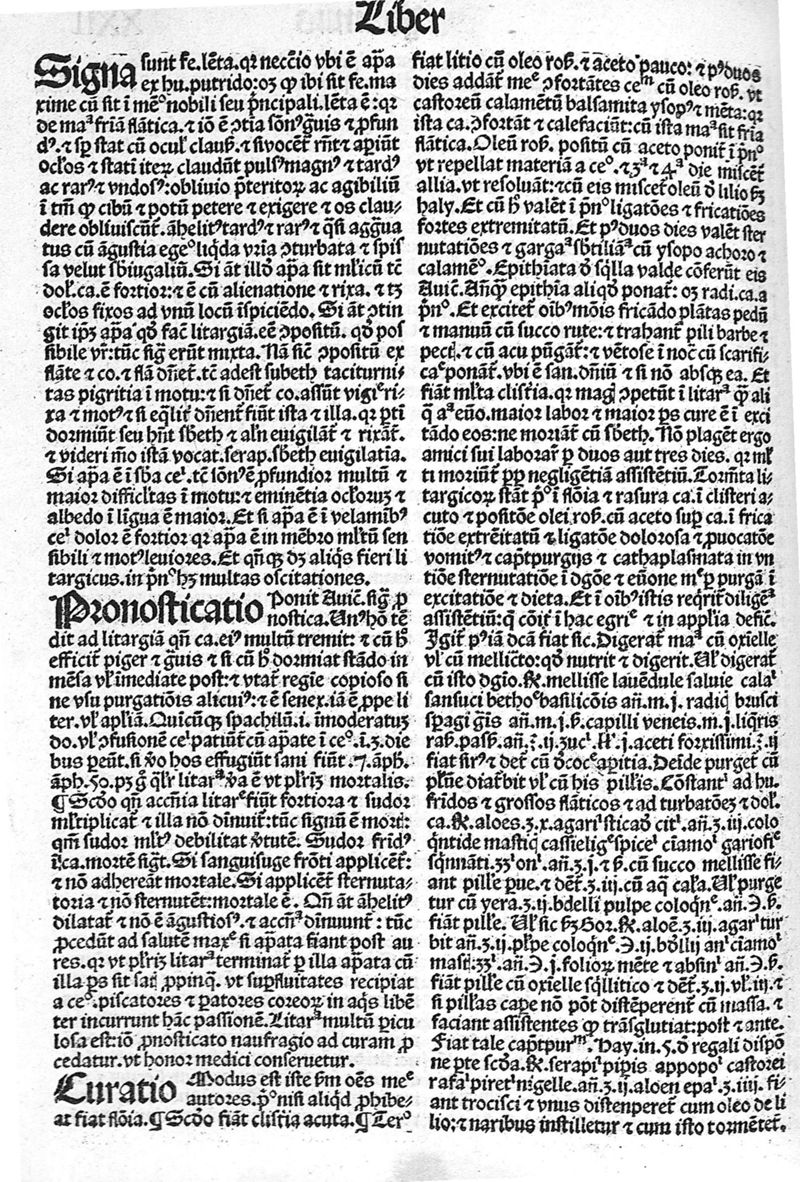 Liber
Signa sunt fe. lẽta. qr neccĩo vbi ẽ ap̃a
ex hu. putrido: oꝫ ꝙ ibi sit fe. ma
xime cũ sit ĩ meᵒ nobili seu p̃ncipali. lẽta ẽ: qr
de maᵃ friᵃ flãtica. ⁊ iõ ẽ ꝯtĩa sõnꝰ gͣuis ⁊ ꝓfun
dꝰ. ⁊ sꝑ stat cũ oculꝰ clausꝰ. ⁊ si vocet̃ aꝑiũt
ocłos ⁊ statĩ iteꝝ claudũt pulsꝰ magnꝰ ⁊ tardꝰ
ac rarꝰ ⁊ vndosꝰ: obliuio p̃teritoꝝ ac agibiliũ
ĩ tm̃ ꝙ cibũ ⁊ potũ petere ⁊ exigere ⁊ os clau-
dere obliuiscũt̃. ãhelitꝰ tardꝰ ⁊ rarꝰ ⁊ q̃si aggͣua
tus cũ ãgustia
sa velut sbiugaliũ. Si ãt illd̃ ap̃a sit
doł. ca. ẽ fortior: ⁊ ẽ cũ alienatione ⁊ rixa. ⁊ tꝫ
ocłos fixos ad vnũ locũ ĩspiciẽdo. Si ãt ꝯtin
git ip̃ꝫ ap̃a qd̃ fac̃ litargiã. eẽ ꝯpositũ. qd̃ pos
sibile vr̃: tũc sigͣ erũt mixta. Nã sic̃ ꝯpositũ ex
flãte ⁊ co. ⁊ flã dñet̃. tẽ adest subeth taciturni-
tas pigritia ĩ motu: ⁊ si dñet̃ co. assũt vigiᵉ ri-
xa ⁊ motꝰ ⁊ si eq̃lit̃ dñent̃ fiũt ista ⁊ illa. qr ꝑtĩ
dormiũt seu hñt sbeth ⁊ alñ euigilãt̃ ⁊ rixãt̃.
⁊ videri m̃o istã vocat. serap. sbeth euigilatĩa.
Si ap̃a ẽ ĩ sb̃a ceⁱ. tẽ sõnꝰ ẽ ꝓfundior multũ ⁊
maior difficłtas ĩ motu: ⁊ eminẽtia ocłoruꝫ ⁊
albedo ĩ lĩgua ẽ maior. Et si ap̃a ẽ ĩ velamĩbꝰ
ceⁱ dolor ẽ fortior qr ap̃a ẽ in mẽbro młtũ sen
sibili ⁊ motꝰ leuiores. Et qñqꝫ dꝫ aliq̃s fieri li
targicus. in p̃nᵒ hꝫ multas oscitationes.
Pronosticatio Ponit Auic̃. sigͣ ꝓ
nostica. Vnꝰ hõ tẽ
dit ad litargiã qñ ca. eiꝰ multũ tremit: ⁊ cũ hꝰ
efficit̃ piger ⁊ gͣuis ⁊ si cũ hꝰ dormiat stãdo in
mẽsa vł ĩmediate post: ⁊ vtat̃ regie copioso si
ne vsu purgatiõis alicuiꝰ: ⁊ ẽ senex. iã ẽ ꝓpe li
ter. vł apliã. Quicũqꝫ spachilũ. i. ĩmoderatuꝫ
do. vł ꝯfusionẽ ceⁱ patiũt̃ cũ ap̃ate ĩ ceᵒ. i. 3. die
bus peũt̃. si ṽo hos effugiũt sani fiũt. 7. apħ.
apħ. 50. pꝫ
¶ Scd̃o qñ accñtia litarᵉ fiũt fortiora ⁊ sudor
młtiplicat̃ ⁊ illa nõ dĩnuit̃: tũc signũ ẽ mori:
qm̃ sudor młtꝰ debilitat ṽtutẽ. Sudor frĩdꝰ
ĩ ca. mortẽ sigͣt. Si sanguisuge frõti applicet̃:
⁊ nõ adhereãt mortale. Si applicet̃ sternuta-
toria ⁊ nõ sternutẽt: mortale ẽ. Qñ ãt ãhelitꝰ
dilatat̃ ⁊ nõ ẽ ãgustiosꝰ. ⁊ accñᵃ dĩnuunt̃: tũc
ꝓcedũt ad salutẽ maxᵉ si ap̃ata fiant post au
res. qr vt płriꝫ litarᵃ terminat̃ ꝑ illa ap̃ata cũ
illa ꝑs sit
a ceᵒ. piscatores ⁊ ꝑatores coreoꝝ in aq̃s libẽ
ter incurrunt hãc passionẽ. Litarᵃ multũ ꝑicu
losa est: iõ ꝓnosticato naufragio ad curam ꝓ
cedatur. vt honor medici conseruetur.
Curatio Modus est iste fm̃ oẽs meᵉ
autores. pᵒ nisi aliqd̃ ꝓhibe-
at fiat flõia. ¶ Scd̃o fiãt clist̃ia acuta. ¶ Terᵒ
fiat litio cũ oleo roß. ⁊ aceto pauco: ⁊ pꝰ duos
dies addãt̃ meᵉ ꝯfortãtes ceᵐ cũ oleo roß. vt
castoreũ calamẽtũ balsamita ysopꝰ ⁊ mẽta: qr
ista ca. ꝯfortãt ⁊ calefaciũt: cũ ista maᵃ sit friᵃ
flãtica. Oleũ roß. positũ cũ aceto ponit̃ ĩ p̃nᵒ
vt repellat materiã a ceᵒ. ⁊ 3ᵃ ⁊ 4ᵃ die miscẽt̃
allia. vt resoluãt: ⁊ cũ eis miscet̃ oleũ d̃ lilio ßꝫ
haly. Et cũ hꝰ valẽt ĩ p̃nᵒ ligatões ⁊ fricatiões
fortes extremitatũ. Et pꝰ duos dies valẽt ster
nutatiões ⁊ gargaᵃ sbtiliãᵃ cũ ysopo achoro ⁊
calamẽᵒ. Epithĩata d̃ sq̃lla valde cõferũt eis
Auic̃. Añqꝫ epithĩa aliqd̃ ponat̃: oꝫ radi. ca. a
p̃nᵒ. Et excitet̃ oĩbꝰ mõis fricãdo plãtas pedũ
⁊ manuũ cũ succo rute: ⁊ trahant̃ pili barbe ⁊
pecł. ⁊ cũ acu pũgãt̃: ⁊ vẽtose ĩ noc̃ cũ scarifi-
caᵉ ponãt̃. vbi ẽ san. dñiũ ⁊ si nõ absqꝫ ea. Et
fiãt młta clist̃ia. qr magͥ ꝯpetũt ĩ litarᵃ ꝙ ali
q̃ aᵃ eũᵒ. maior labor ⁊ maior ꝑs cure ẽ ĩ exci
tãdo eos: ne moriãt̃ cũ sbeth. Nõ plagẽt ergo
amici sui laborar̃ ꝑ duos aut tres dies. qr mł
ti moriũt̃ ꝓꝑ negligẽtiã assistẽtiũ. Tormẽta li-
targicoꝝ stãt pᵒ ĩ flõia ⁊ rasura ca. ĩ clisteri a-
cuto ⁊ positõe olei roß. cũ aceto suꝑ ca. ĩ frica
tiõe extrẽitatũ ⁊ ligatõe dolorosa ⁊ ꝓuocatõe
vomitꝰ ⁊ cap̃tpurgijs ⁊ cathaplasmata in vn
tiõe sternutatiõe ĩ dgõe ⁊ eũone mᵉ purgã ĩ
excitatiõe ⁊ dieta. Et ĩ oĩbꝰ istis reqrit̃ diligẽᵃ
assistẽtiũ: q̃ cõit̃ ĩ hac egriᵉ ⁊ in apłia defic̃.
Igit̃ pꝰ iã dc̃a fiat sic. Digerat̃ maᵃ cũ oxielle
vł cũ mellic̃to: qd̃ nutrit ⁊ digerit. Vł digerat̃
cũ isto dgĩo. ℞. mellisse lauẽdule saluie calaⁱ
sansuci bethoᵉ basilicõis añ. m. j. radiq̃ brusci
sꝑagi gͣis añ. m. j. ß. capilli veneis. m. j. liqris
raß. pasß. añ. ℥. ij. ℥ucⁱ. łł. j. aceti forxissimi. ℥. ij
fiat sirꝰ ⁊ det̃ cũ d̃cocᵉ aꝑitia. Deĩde purget̃ cũ
płõne diatbit vł cũ his piłłis. Cõstantⁱ ad hu.
frĩdos ⁊ grossos flãticos ⁊ ad turbatõeꝫ ⁊ doł.
ca. ℞. aloes. ʒ. x. agariⁱ sticad̃ citⁱ. añ. ʒ. iij. colo
qntide mastiq̃ cassieligᵉ spiceⁱ ciamoⁱ gariofiᵉ
sq̃nnãti. ʒʒⁱ onⁱ. añ. ʒ. j. ⁊ ß. cũ succo mellisse fi-
ant piłłe ꝑue. ⁊ det̃. ʒ. iij. cũ aq̃ cała. Vł purge
tur cũ yera. ʒ. ij. bdelli pulpe coloqñᵉ. añ. ℈. ß.
fiãt piłłe. Vł sic ßꝫ Gor. ℞. aloẽ. ʒ. iij. agarⁱ tur
bit añ. ʒ. ij. płpe coloqñᵉ. ℈. ij. bdłlij anⁱ ciamoⁱ
mastⁱ. ʒʒⁱ. añ. ℈. j. folioꝝ mẽte ⁊ absinⁱ añ. ℈. ß.
fiãt piłłe cũ oxielle sq̃litico ⁊ dẽt̃. ʒ. ij. vł. iij. ⁊
si piłłas caꝑe nõ põt distẽꝑent̃ cũ massa. ⁊
faciant assistentes ꝙ trãsglutiat: post ⁊ ante.
Fiat tale cap̃tpurᵐ. Hay. in. 5. d̃ regali dispõ
ne ꝑte scd̃a. ℞. serapiⁱ piꝑis appopoⁱ castorei
rafaⁱ piretⁱ nigelle. añ. ʒ. ij. aloen epaⁱ. ʒ. iiij. fi-
ant trocisci ⁊ vnus distenperet̃ cum oleo de li
lio: ⁊ naribus instilletur ⁊ cum isto tormẽtet̃.